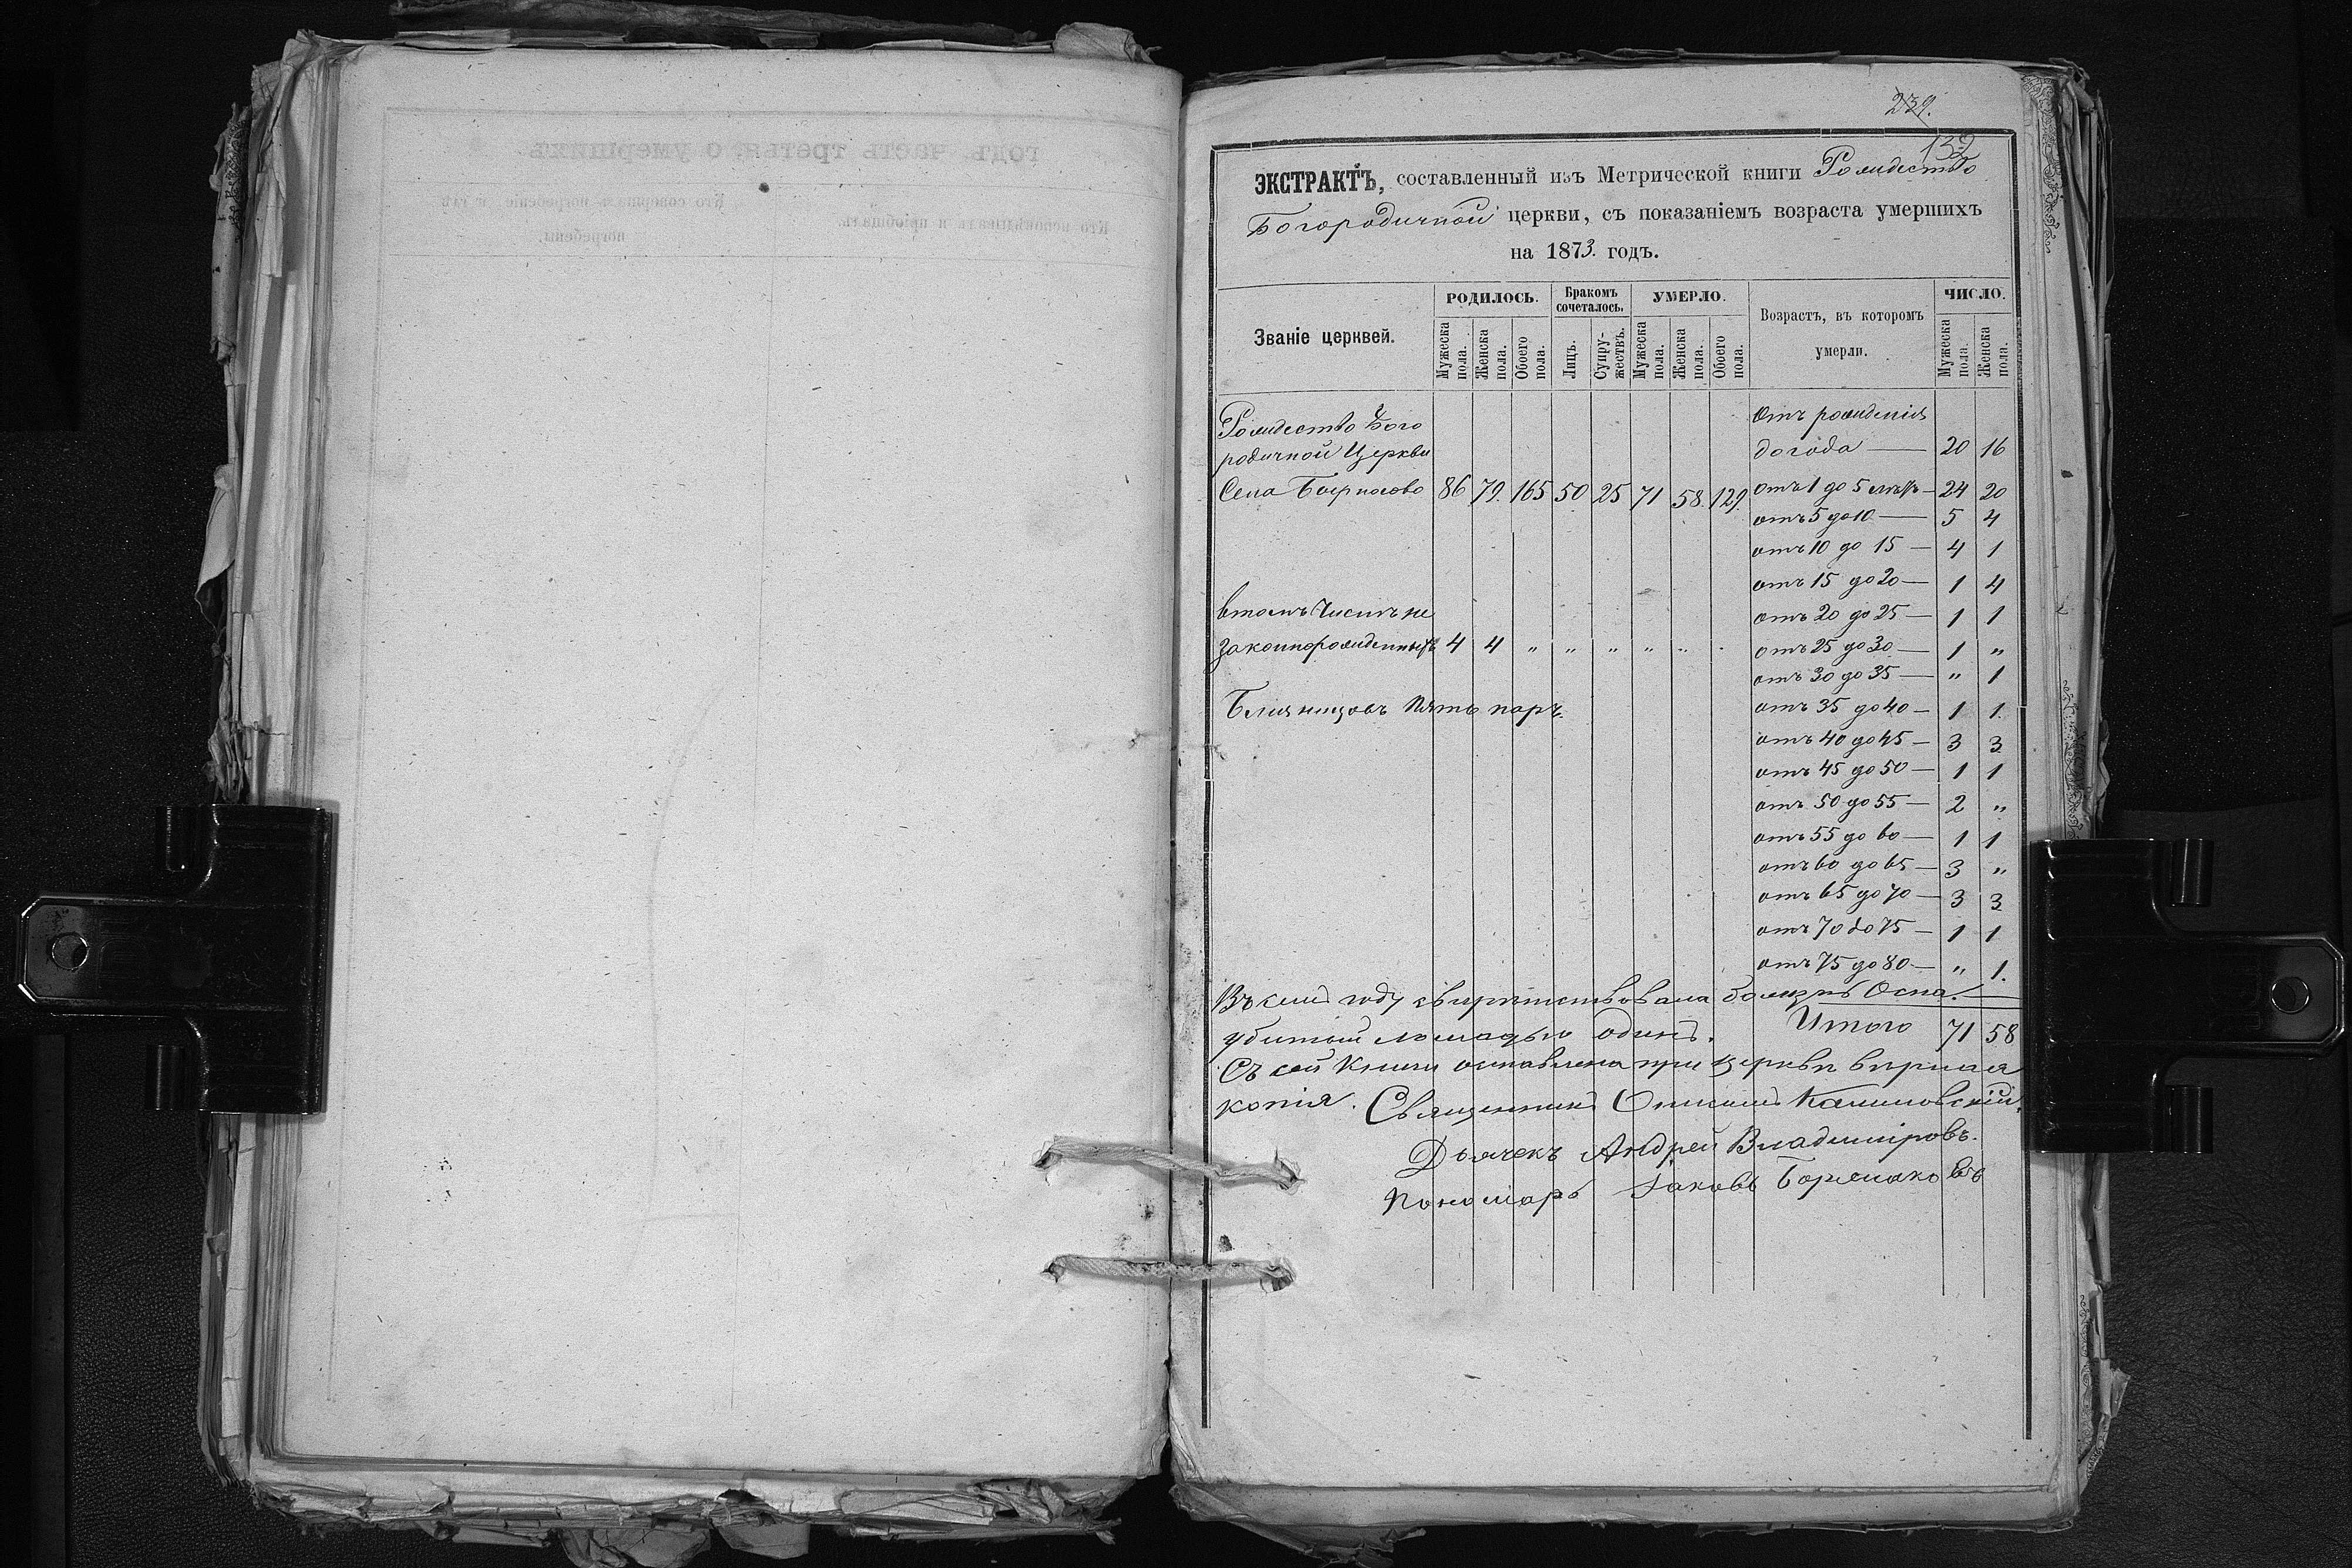 239.
132
ЭКСТРАКТЪ, составленный изъ Метрической книги Рождество
Богородичной церкви, съ показаніемъ возраста умершихъ
на 1873. годъ.
Званіе церквей.
РОДИЛОСЬ.
Бракомъ сочеталось.
УМЕРЛО.
Возрастъ, въ которомъ умерли.
ЧИСЛО.
Мужеска пола. Женска пола. Обоего пола. Лицъ. Супружествъ. Мужеска пола. Женска пола. Обоего пола. Мужеска пола. Женска пола.
Рождество Бого
родичной Церкви
Села 86 79. 165 50 25 71 58. 129.
втомъ Числѣ не
законнорожденныхъ 4 4 „ „ „ „ „ „
Близнецовъ пять паръ.
Отъ рожденія
до года — 20 16
отъ 1 до 5 лѣтъ — 24 20
отъ 5 до 10 — 5 4
отъ 10 до 15 — 4 1
отъ 15 до 20 — 1 4
отъ 20 до 25 — 1 1
отъ 25 до 30 — 1 „
отъ 30 до 35 — „ 1
отъ 35 до 40 — 1 1.
отъ 40 до 45 — 3 3
отъ 45 до 50 — 1 1
отъ 50 до 55 — 2 „
отъ 55 до 60 — 1 1
отъ 60 до 65 — 3 „
отъ 65 до 70 — 3 3
отъ 70 до 75 — 1 1
отъ 75 до 80 — „ 1.
Въ семъ году свирѣпствовала болѣзнь Оспа.
убитый лошадью одинъ. Итого 71 58
Съ сей Книги оставлена при церкви вѣрная
копія. Священникъ
Дьячекъ Андрей Владиміровъ.
Пономарь Іаковъ
годъ, часть третья, о умершихъ.
Кто исповѣдывалъ и пріобщалъ.
Кто совершалъ погребеніе и гдѣ погребены.